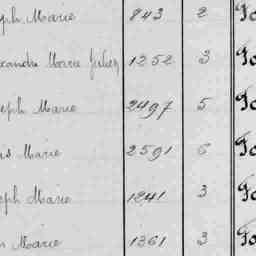 eph Marie 843 2 Fo
xandre Marie Julien 1252 3 Fo
seph Marie 2497 5 Fo
as Marie 2591 6 Fo
eph Marie 1241 3 Fo
Marie 1361 3 Fo